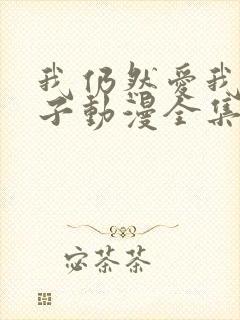 我仍然愛我
子動漫全集
宓茶茶